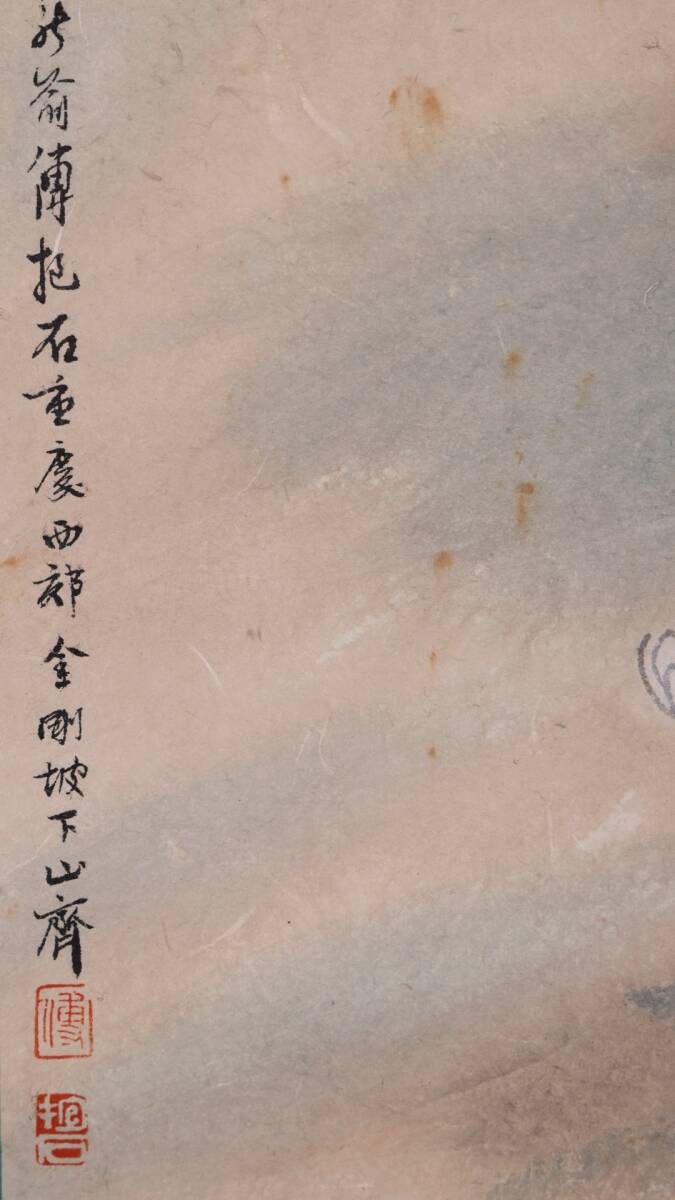 新喻傅抱石重慶西郊金剛坡下山齋
傅
抱石